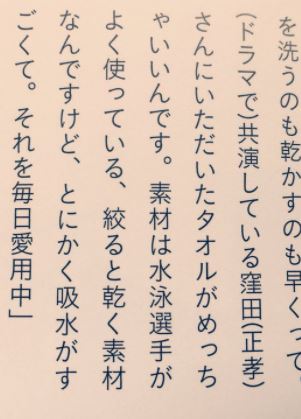 を洗うのも乾かすのも早くって。
(ドラマで)共演している窪田(正孝)
さんにいただいたタオルがめっち
ゃいいんです。素材は水泳選手が
よく使っている、絞ると乾く素材
なんですけど、とにかく吸水がす
ごくて。それを毎日愛用中」